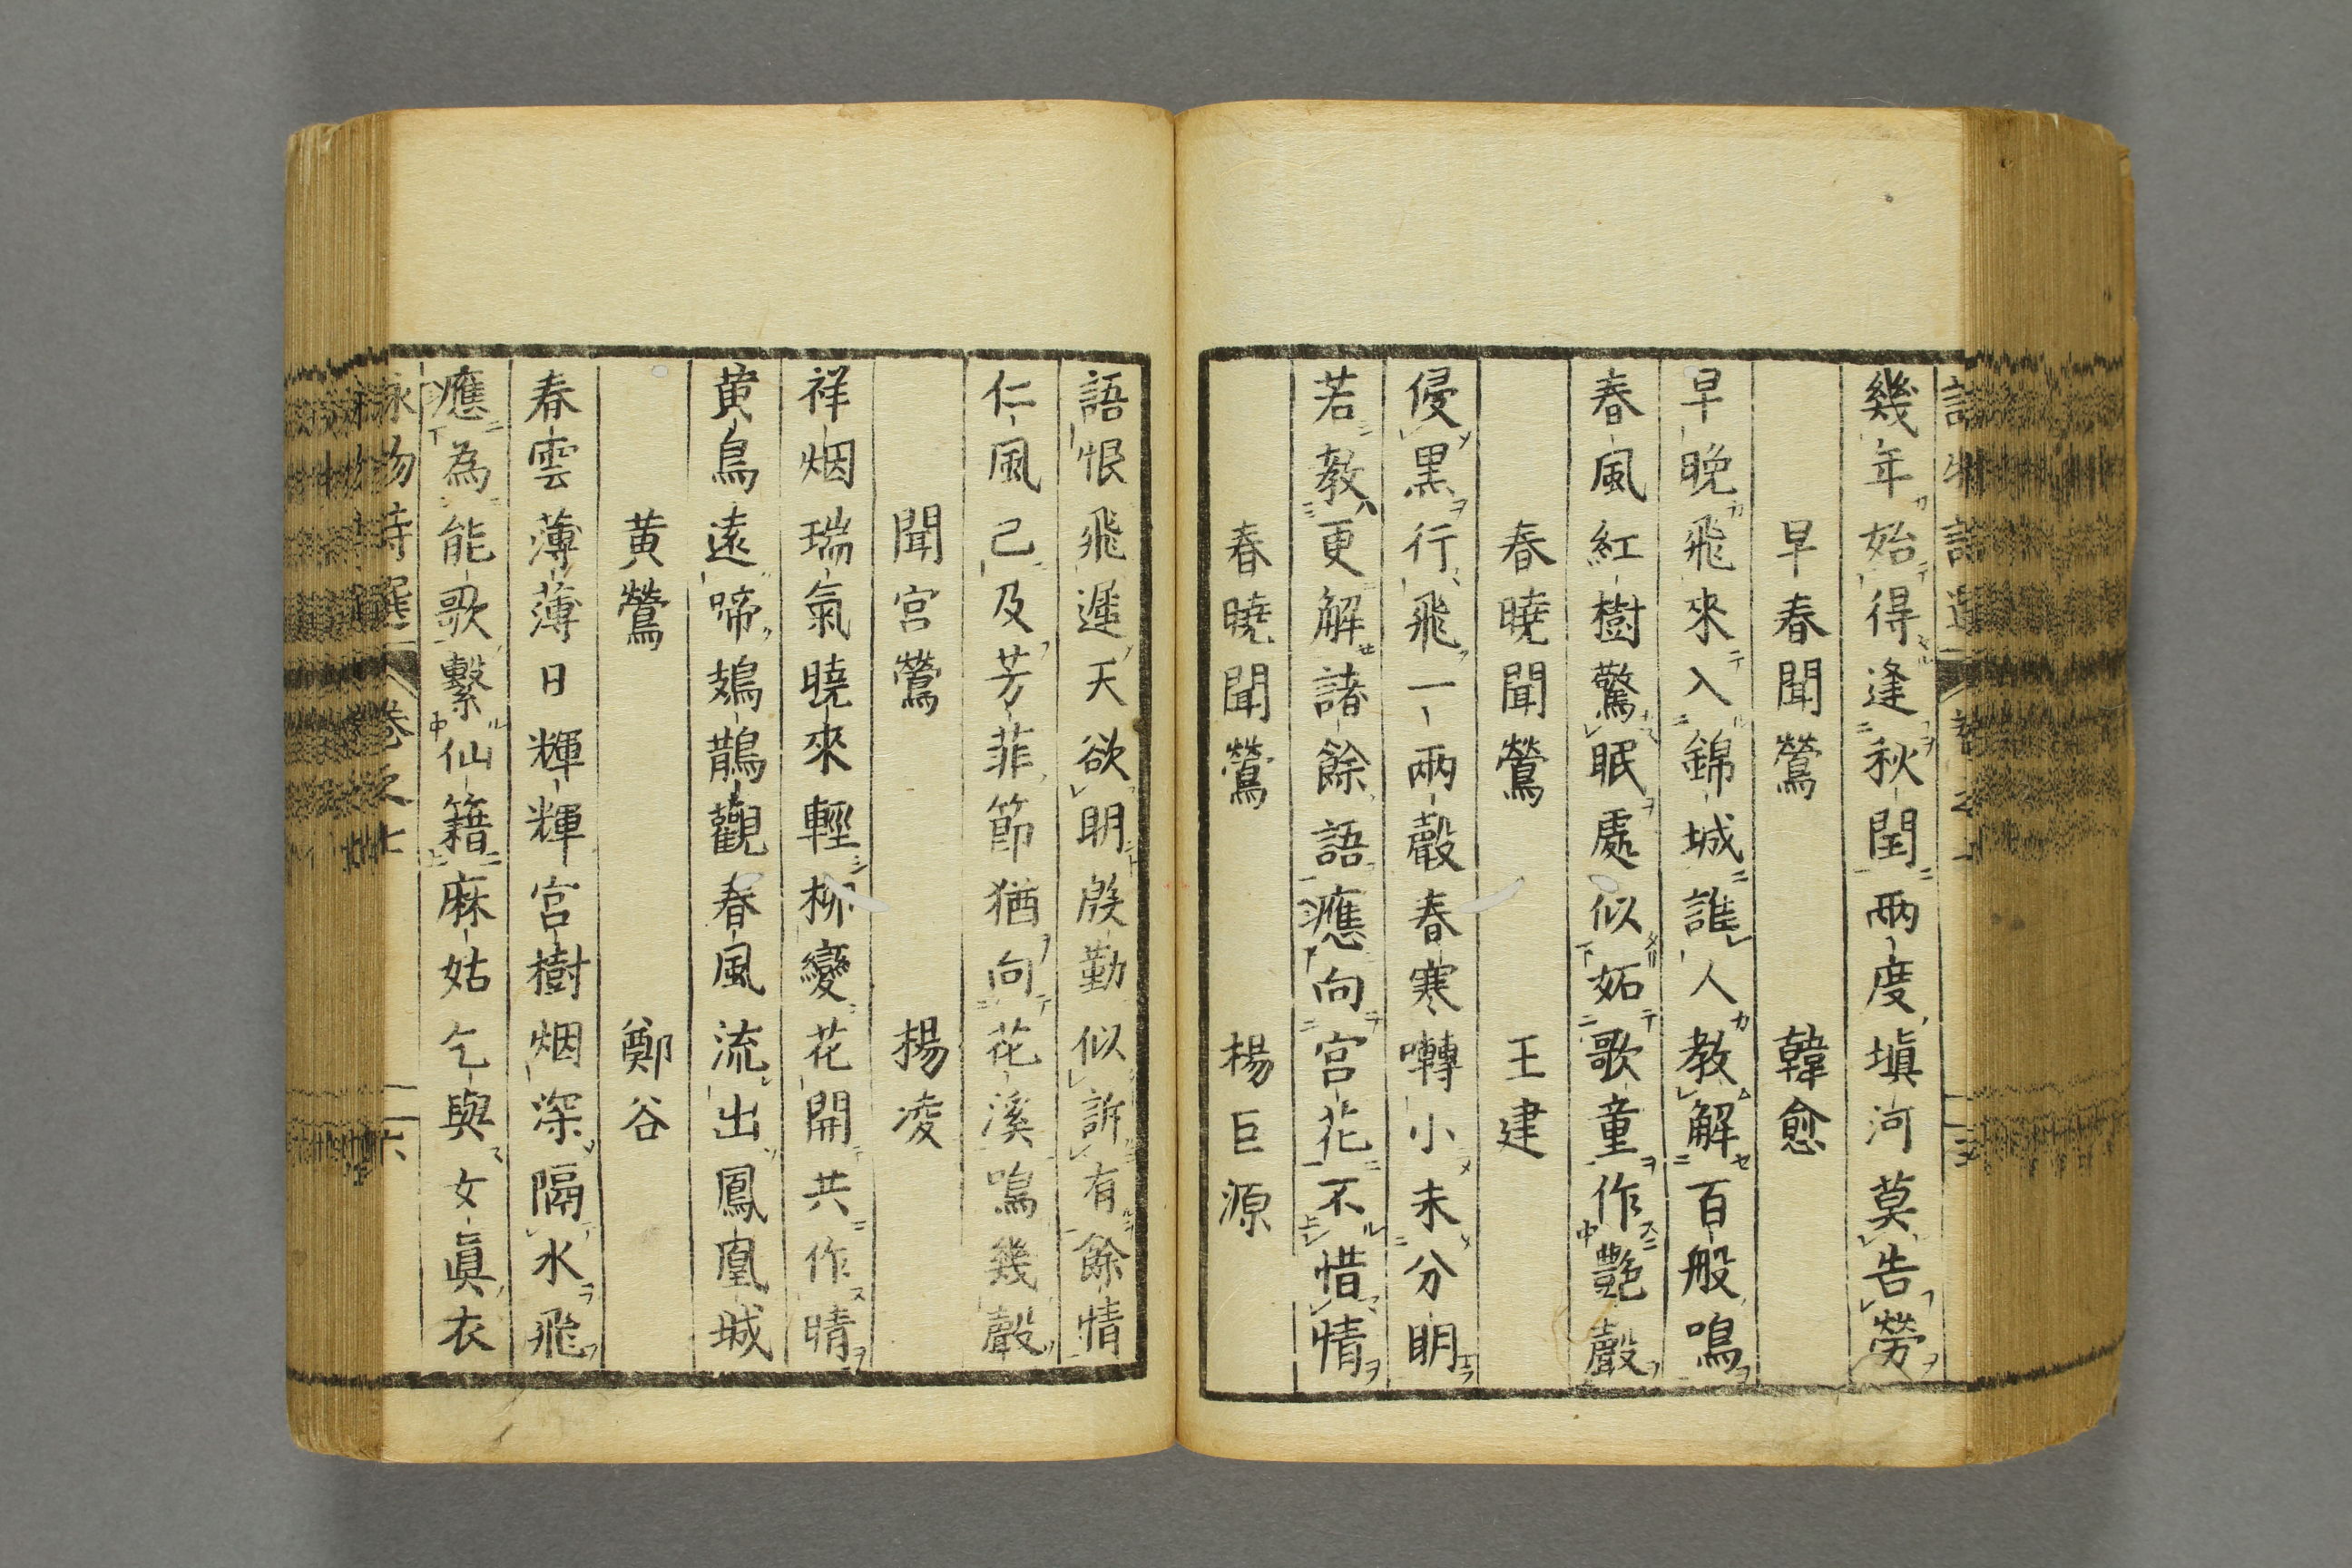 幾年始得逢秋閏兩度塡河莫告勞
早春聞鶯 韓愈
早晩飛來入錦城誰人教解百般鳴
春風紅樹驚眠處似妬歌童作艷聲
春曉聞鶯 王建
侵黑行飛一兩聲春寒囀小未分明
若教更解諸餘語應向宮花不惜情
春曉聞鶯 楊巨源
語恨飛遲天欲明殷勤似訴有餘情
仁風已及芳菲節猶向花溪鳴幾聲
聞宮鶯 楊凌
祥烟瑞氣曉來輕柳變花開共作晴
黄鳥遠啼鳷鵲觀春風流出鳳凰城
黄鶯 鄭谷
春雲薄薄日輝輝宮樹烟深隔水飛
應為能歌繫仙籍麻姑乞與女眞衣
詠物詩選 卷之七